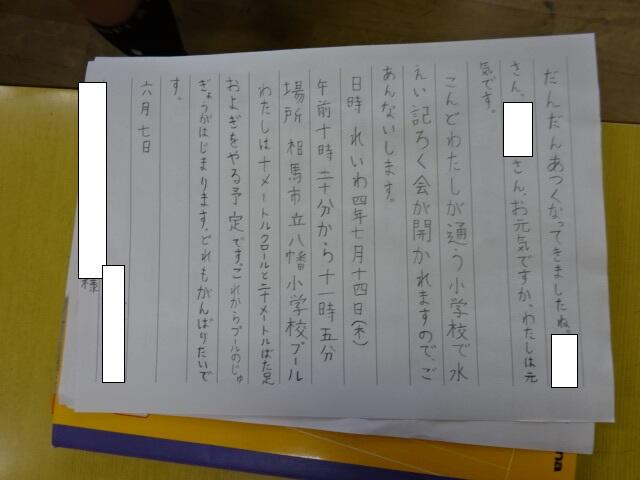 だんだんあつくなってきましたね。
さん、さん、お元気ですか。わたしは元
気です。
こんどわたしが通う小学校で水
えい記ろく会が開かれますので、ご
あんないします。
日時 れいわ四年七月十四日(木)
午前十時二十分から十一時五分
場所 相馬市立八幡小学校プール
わたしは十メートルクロールと二十メートルばた足
およぎをやる予定です。これからプールのじゅ
ぎょうがはじまります。どれもがんばりたいで
す。
六月七日
様